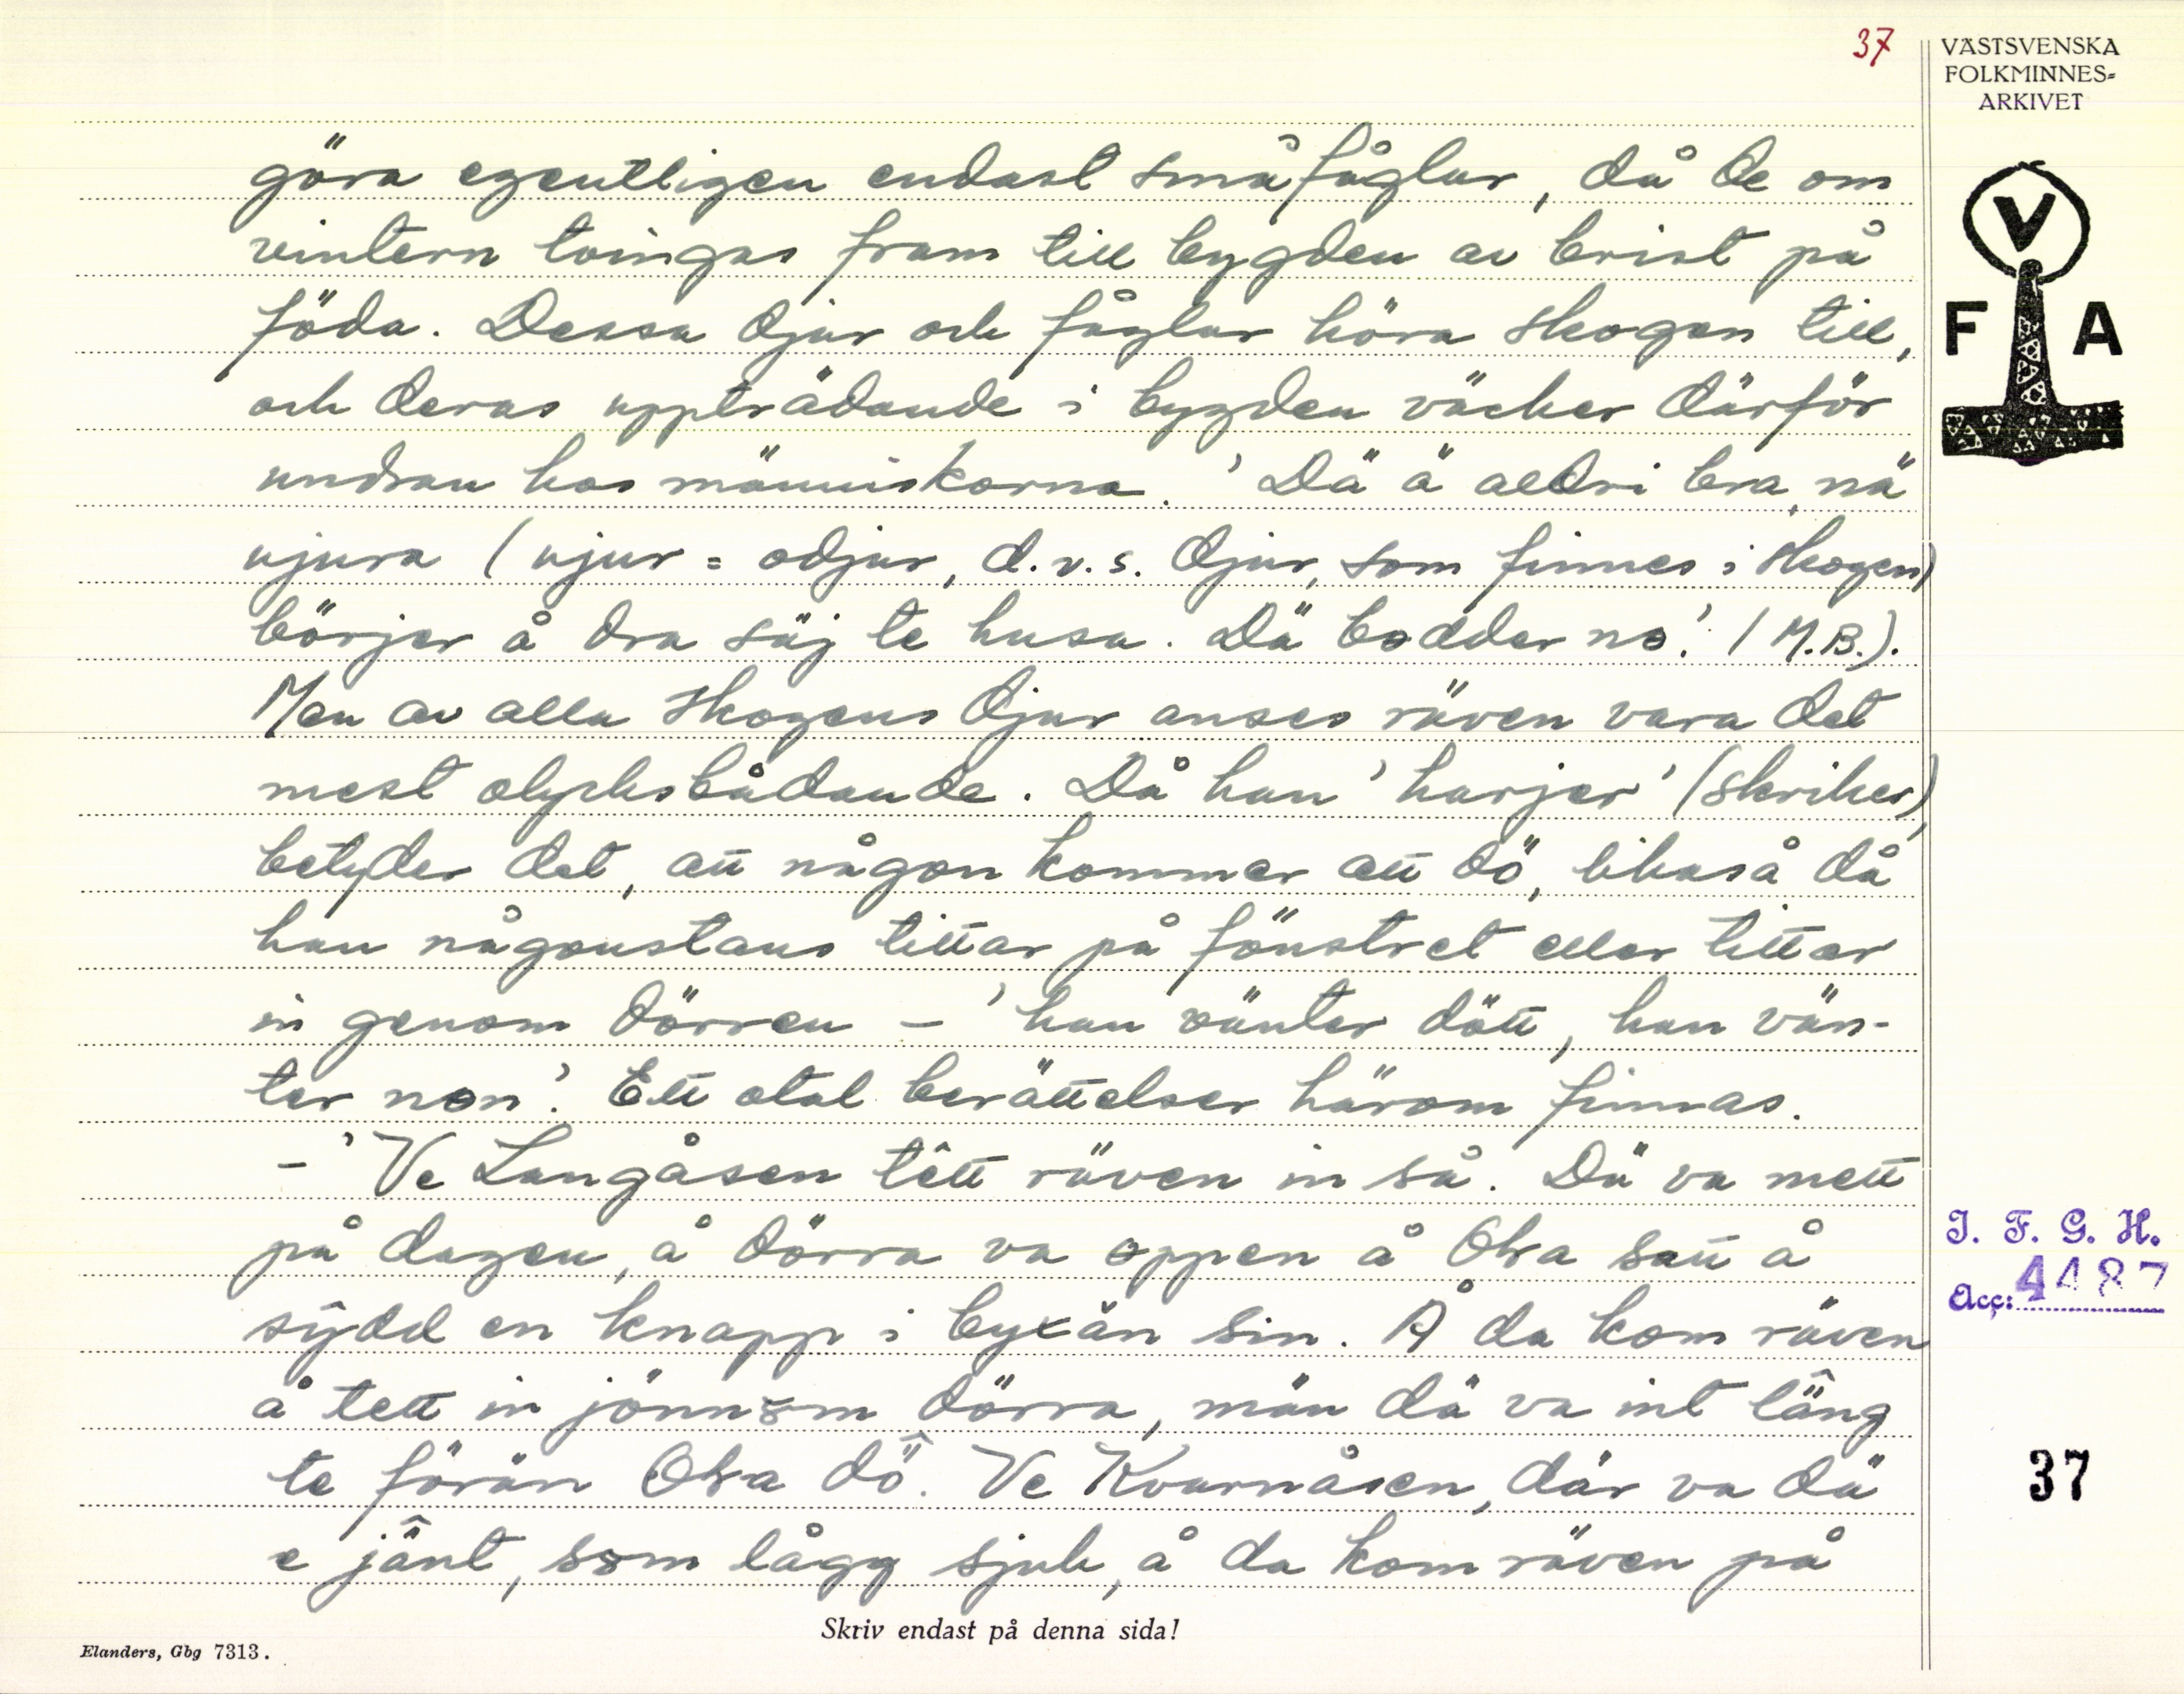 37
VÄSTSVENSKA
FOLKMINNES=
ARKIVET
V
F A
göra egentligen endast småfåglar, då de om
vintern tvingas fram till bygden av brist på
föda. Dessa djur och fåglar höra skogen till,
och deras uppträdande i bygden väcker därför
undran hos människorna. 'Dä ä aldri bra, nä
ujura (ujur = odjur, d.v.s. djur, som finnes i skogen)
börjer å dra säj te husa. Dä bodder no'. (M.B.).
Men av alla skogens djur anses räven vara det
mest olycksbådande. Då han 'harjer' (skriker),
betyder det, att någon kommer att dö, likaså då
han någonstans tittar på fönstret eller tittar
in genom dörren – 'han vänter dött, han vän-
ter non'. Ett otal berättelser härom finnas.
– 'Ve Langåsen têtt räven in så. Dä va mett
på dagen, å dörra va oppen å Ola satt å
sŷdd en knapp i byxân sin. Å da kom räven
å tett in jönnom dörra, män dä va int lâ̈ng
te förän Ola dö̂. Ve Kvarnåsen, där va dä
e jä̂nt, som lågg sjuk, å da kom räven på
I. F. G. H.
Acc: 4487
37
Skriv endast på denna sida!
Elanders, Gbg 7313.